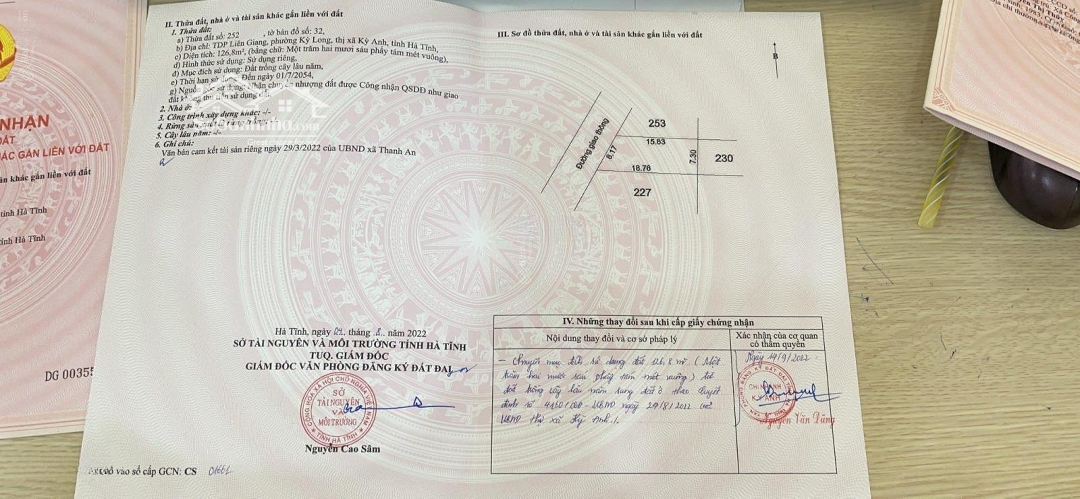 NHẬN
ĐẤT
KHÁC GẮN LIỀN VỚI ĐẤT
sản khác gắn liền với đất
tỉnh Hà Tĩnh
tỉnh Hà Tĩnh
DG 00355
II. Thửa đất, nhà ở và tài sản khác gắn liền với đất
1. Thửa đất:
a) Thửa đất số: 252 , tờ bản đồ số: 32,
b) Địa chỉ: TDP Liên Giang, phường Kỳ Long, thị xã Kỳ Anh, tỉnh Hà Tĩnh,
c) Diện tích: 126,8m², (bằng chữ: Một trăm hai mươi sáu phẩy tám mét vuông),
d) Hình thức sử dụng: Sử dụng riêng,
đ) Mục đích sử dụng: Đất trồng cây lâu năm,
e) Thời hạn sử dụng: Đến ngày 01/7/2054,
g) Nguồn gốc sử dụng: Nhận chuyển nhượng đất được Công nhận QSDĐ như giao
đất không thu tiền sử dụng đất.
2. Nhà ở:
3. Công trình xây dựng khác: -/-
4. Rừng sản xuất là rừng trồng: -/-
5. Cây lâu năm: -/-
6. Ghi chú:
Văn bản cam kết tài sản riêng ngày 29/3/2022 của UBND xã Thanh An
Hà Tĩnh, ngày tháng năm 2022
SỞ TÀI NGUYÊN VÀ MÔI TRƯỜNG TỈNH HÀ TĨNH
TUQ. GIÁM ĐỐC
GIÁM ĐỐC VĂN PHÒNG ĐĂNG KÝ ĐẤT ĐAI
SỞ
TÀI NGUYÊN
VÀ
MÔI TRƯỜNG
TỈNH HÀ TĨNH
Nguyễn Cao Sâm
vào sổ cấp GCN: CS 01661
III. Sơ đồ thửa đất, nhà ở và tài sản khác gắn liền với đất
B
Đường giao thông
253
15.63
8.17
7.30
230
18.76
227
IV. Những thay đổi sau khi cấp giấy chứng nhận
Nội dung thay đổi và cơ sở pháp lý
Xác nhận của cơ quan
có thẩm quyền
- Chuyển mục đích sử dụng đất 126,8 m² (Một
trăm hai mươi sáu phẩy tám mét vuông) từ
đất trồng cây lâu năm sang đất ở theo Quyết
định số UBND ngày 29/8/2022 của
UBND thị xã Kỳ Anh./.
Ngày 14/9/2022
CHI NHÁNH
KỲ ANH
Nguyễn Văn Dũng